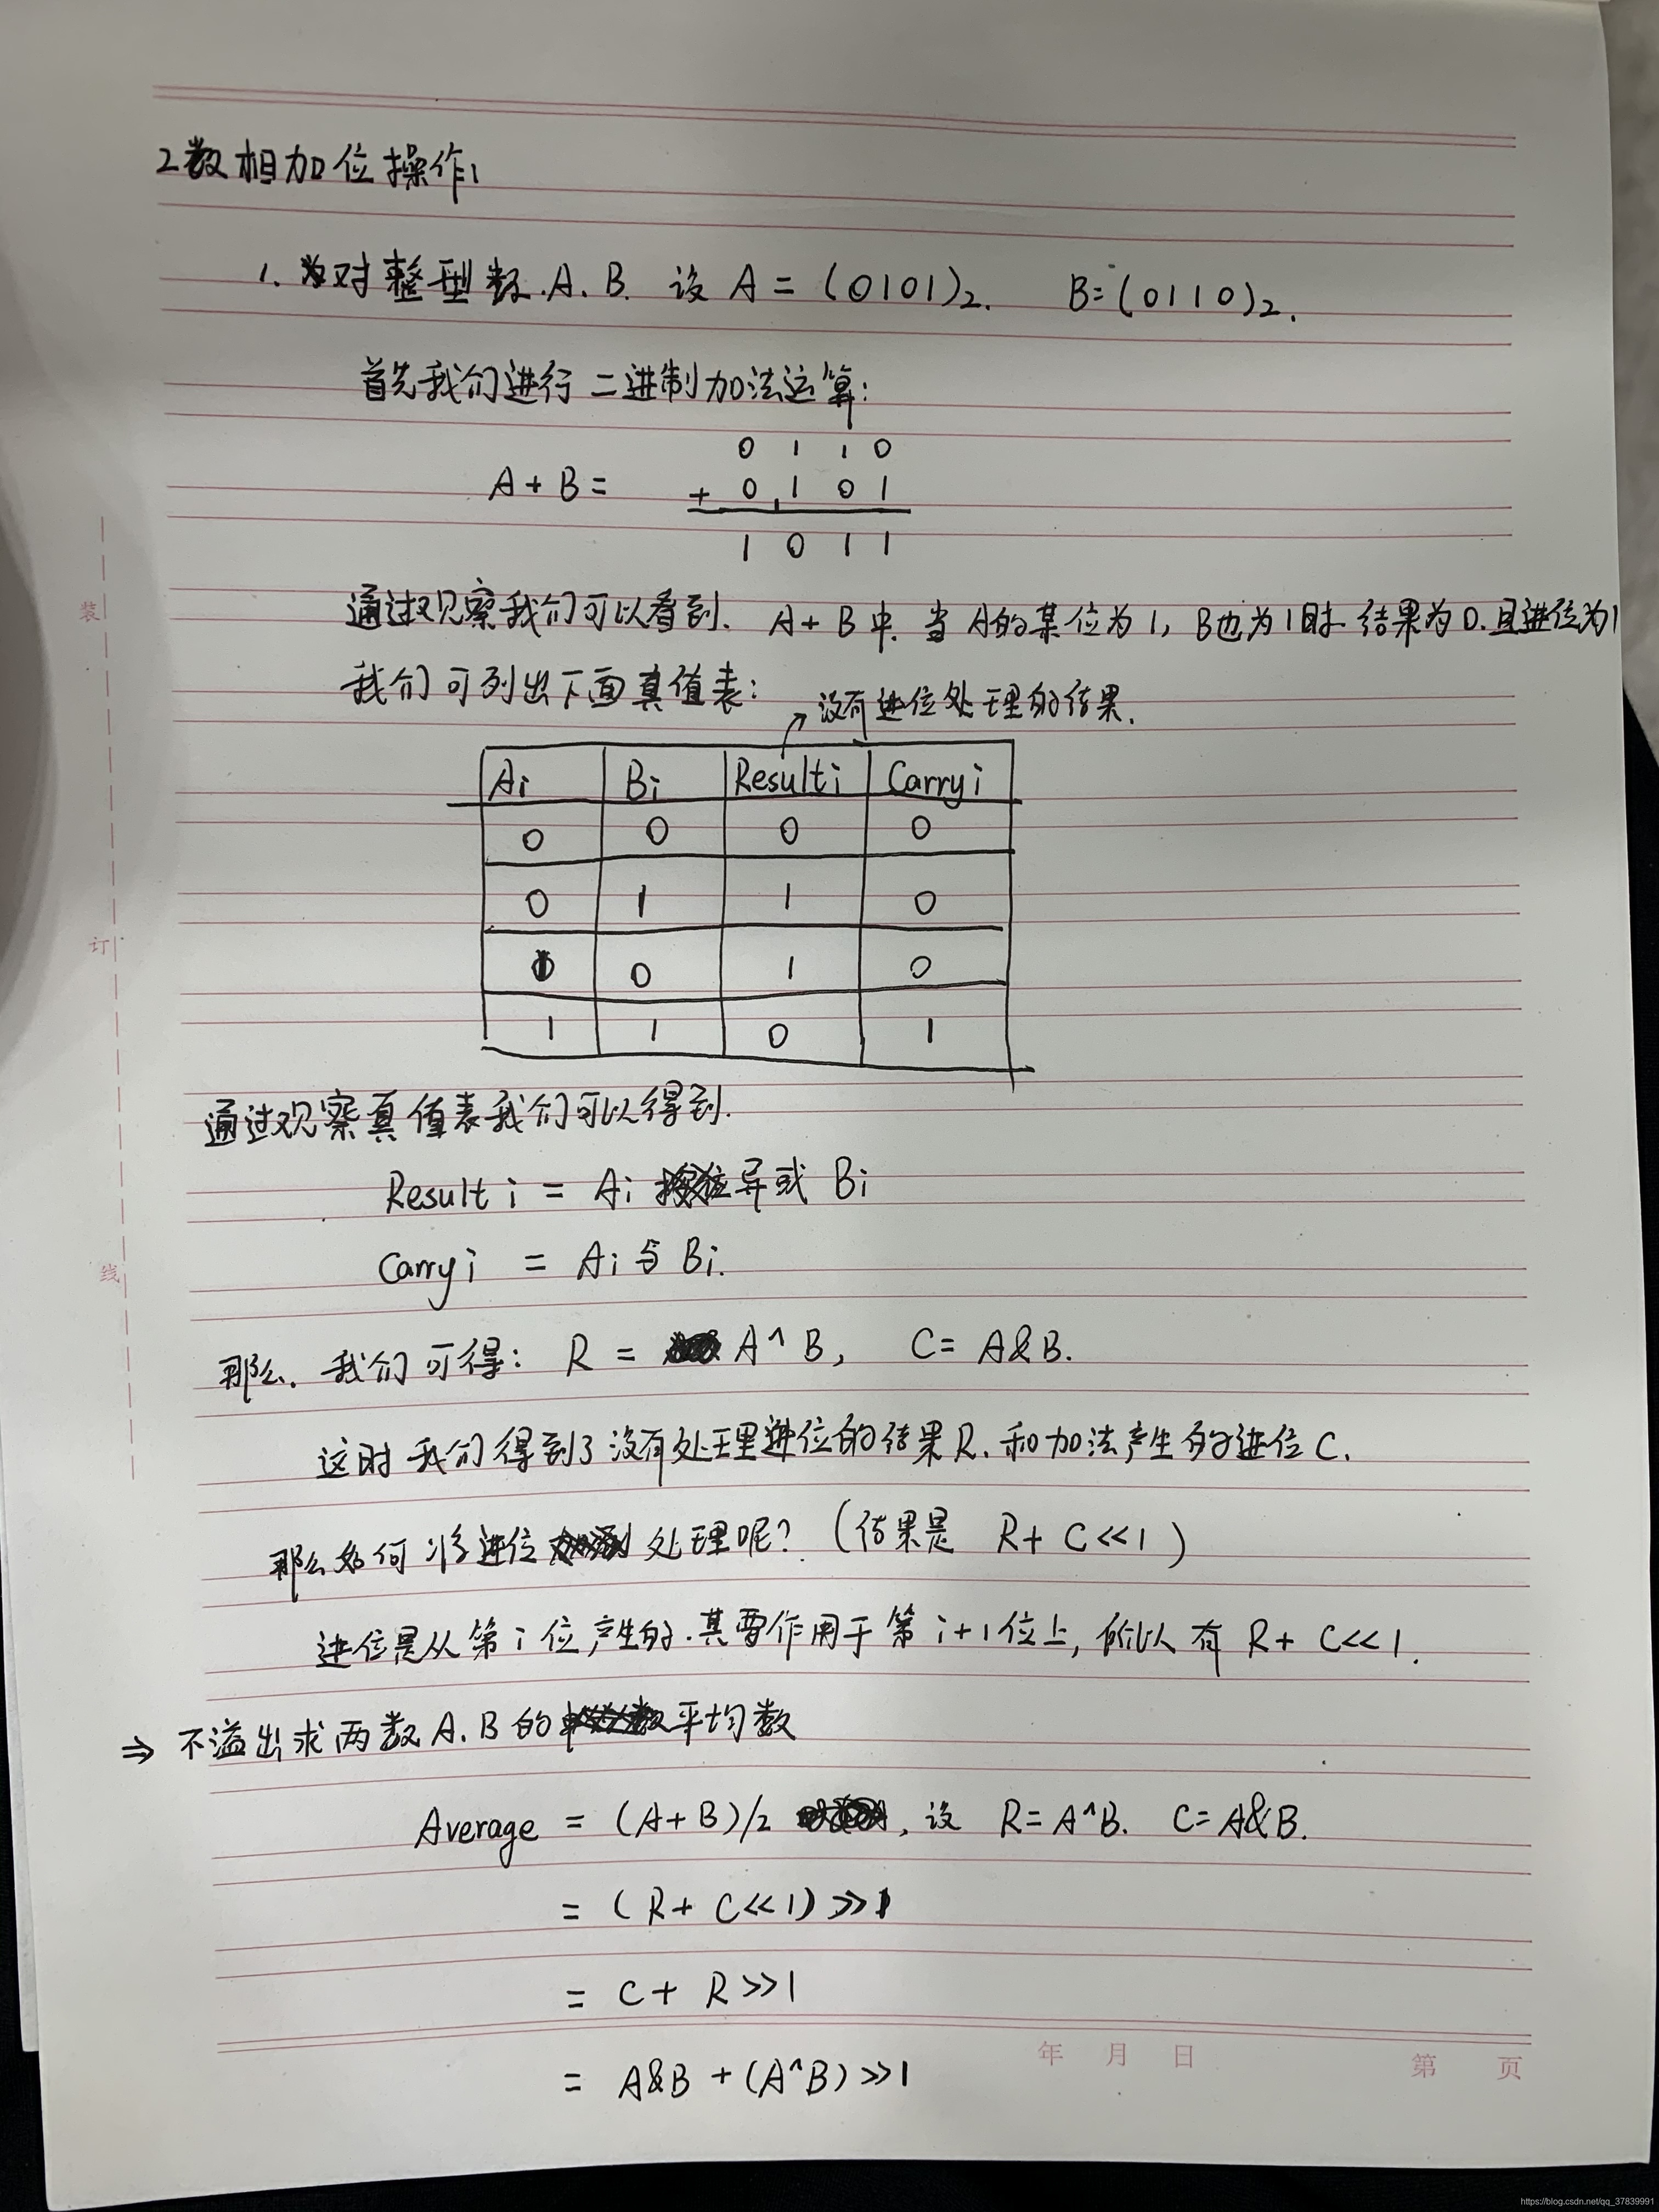 2数相加位操作:
1. 对整型数.A.B. 设 A = (0101)₂. B=(0110)₂.
首先我们进行 二进制加法运算:
0 1 1 0
A + B = + 0 1 0 1
1 0 1 1
通过观察我们可以看到. A + B 中. 当 A的某位为1, B也为1时. 结果为0.且进位为1
我们可列出下面真值表:
没有进位处理的结果.
Ai Bi Resulti Carryi
0 0 0 0
0 1 1 0
1 0 1 0
1 1 0 1
通过观察真值表我们可以得到.
Resulti = Ai 异或 Bi
Carryi = Ai 与 Bi.
那么. 我们可得: R = A^B, C = A&B.
这时我们得到了没有处理进位的结果R. 和加法产生的进位C.
那么如何将进位处理呢? (结果是 R + C<<1)
进位是从第i位产生的.其要作用于第i+1位上, 所以有 R + C<<1.
⇒ 不溢出求两数A.B的平均数
Average = (A+B)/2 , 设 R=A^B. C=A&B.
= (R + C<<1) >>1
= C + R>>1
= A&B + (A^B)>>1
装
订
线
年 月 日
第 页
https://blog.csdn.net/qq_37839991